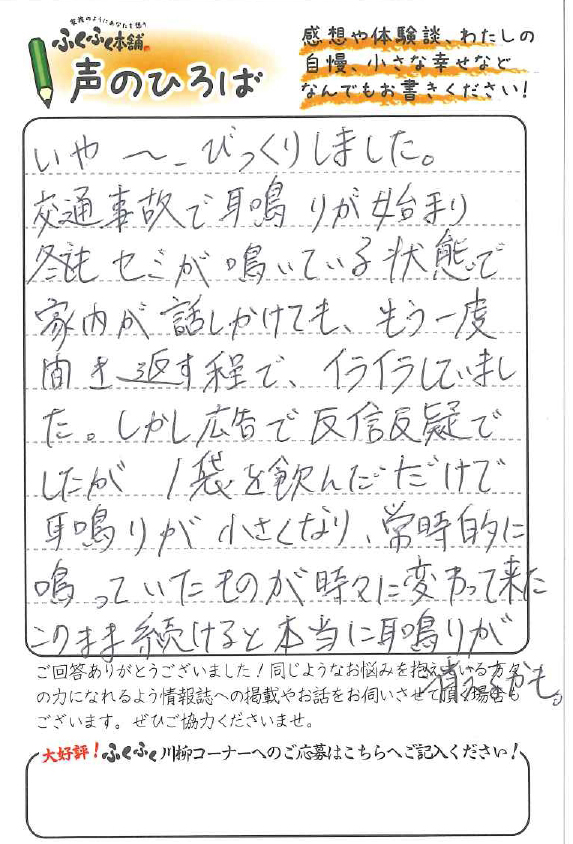 家族のようにあなたを想う
ふくふく本舗
声のひろば
感想や体験談、わたしの
自慢、小さな幸せなど
なんでもお書きください!
いや〜 びっくりしました。
交通事故で耳鳴りが始まり
セミが鳴いている状態で
家内が話しかけても、もう一度
聞き返す程で、イライラしていまし
た。しかし広告で反信反疑で
したが 1袋を飲んだだけで
耳鳴りが小さくなり、常時的に
鳴っていたものが時々に変わって来た
このまま続けると本当に耳鳴りが
消えるかも。
ご回答ありがとうございました!同じようなお悩みを抱えている方々
の力になれるよう情報誌への掲載やお話をお伺いさせて頂く場合も
ございます。ぜひご協力くださいませ。
大好評!ふくふく川柳コーナーへのご応募はこちらへご記入ください!